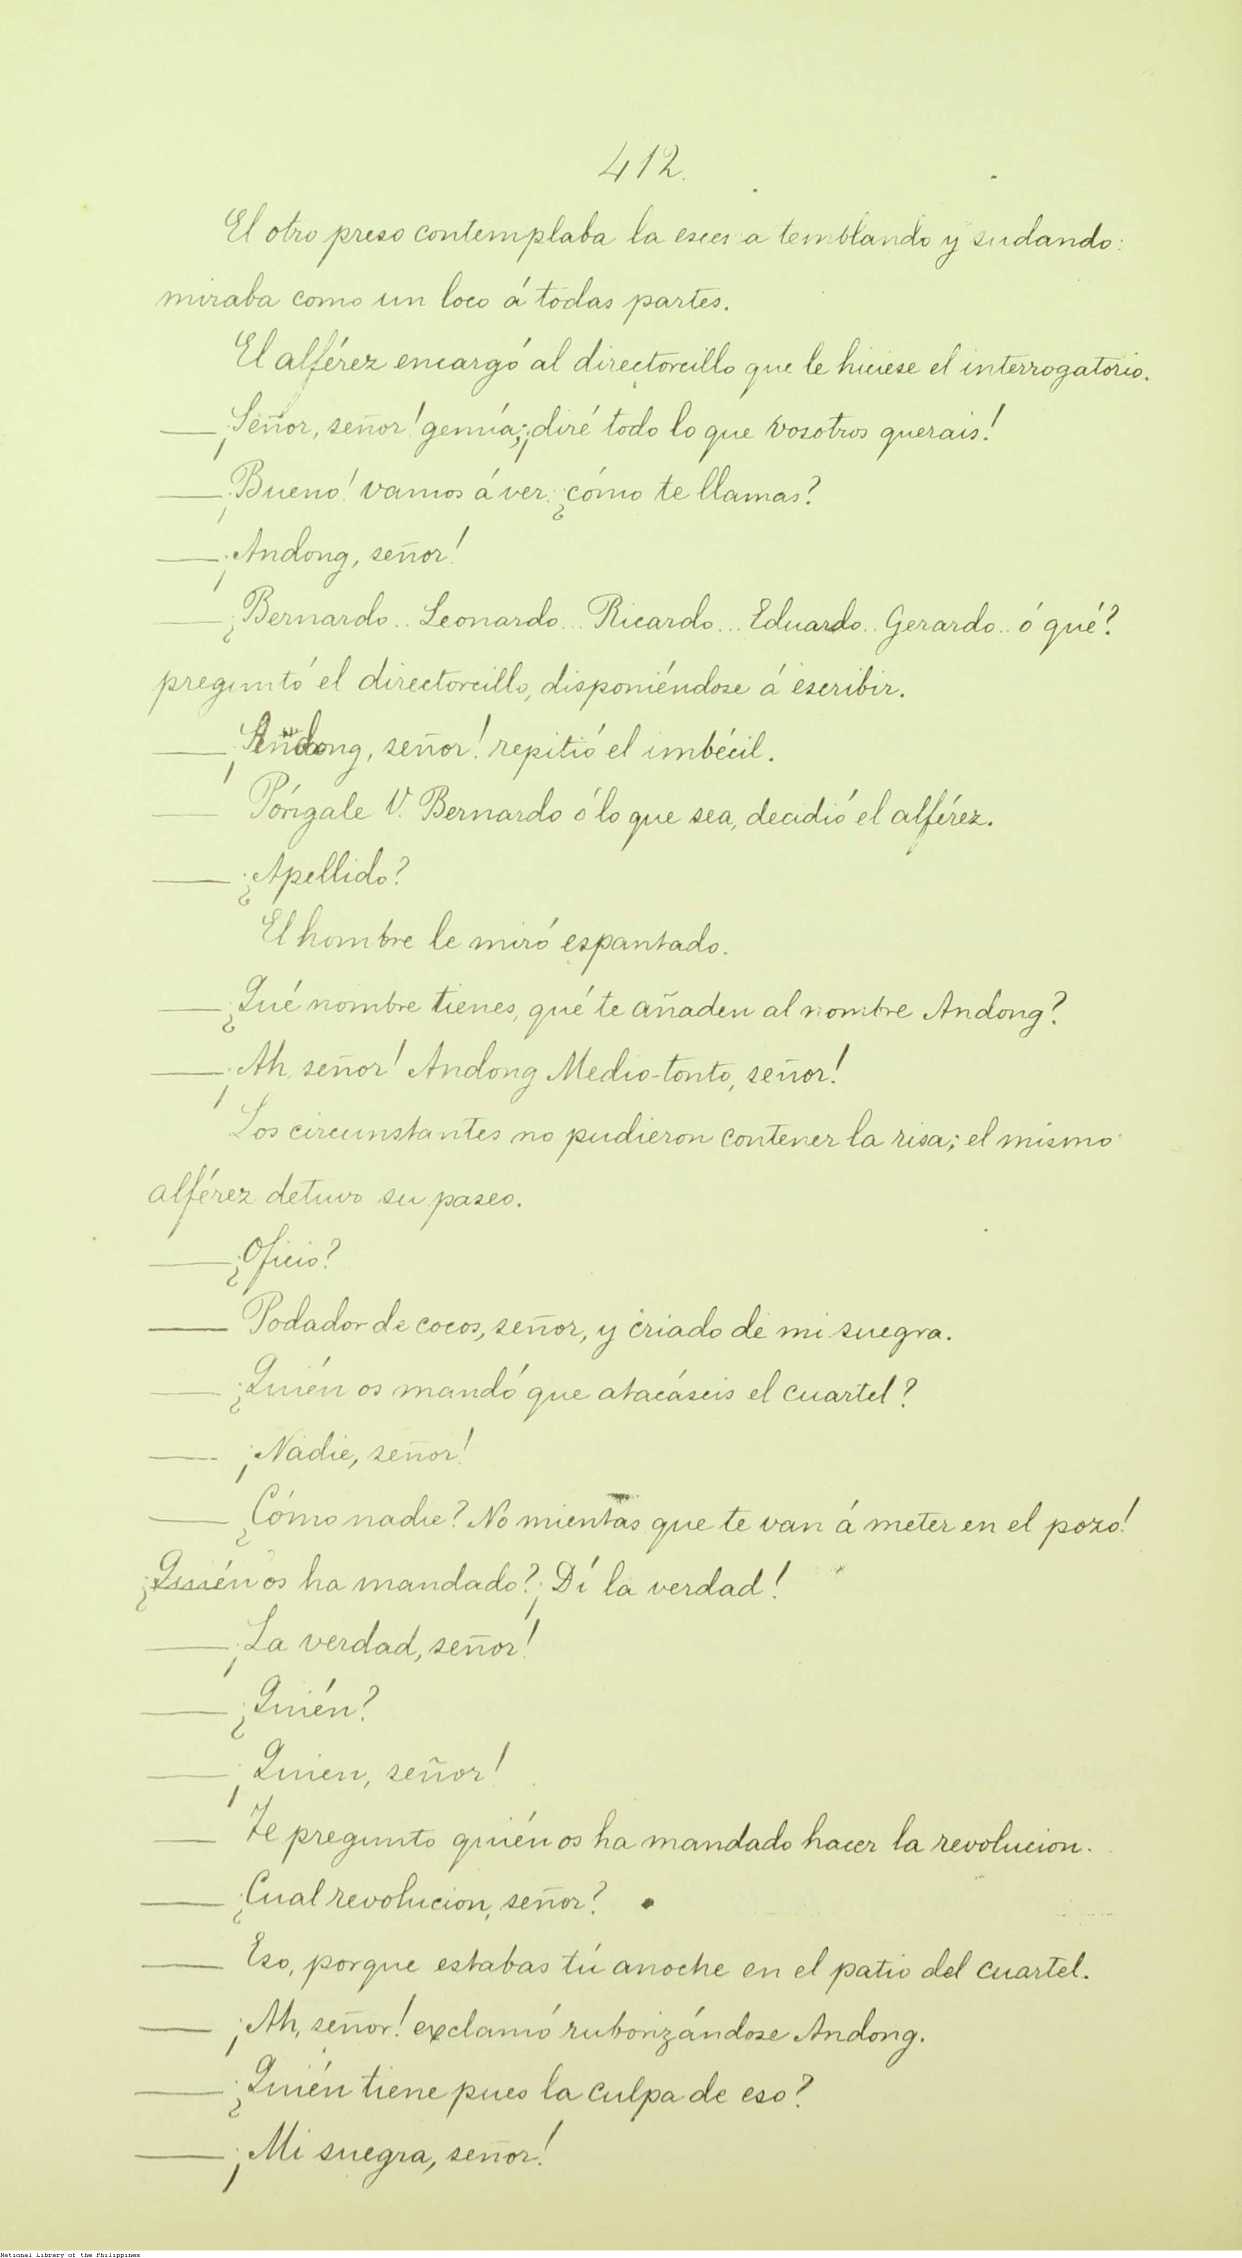 412.
El otro preso contemplaba la escena temblando y sudando:
miraba como un loco á todas partes.
El alférez encargó al directorcillo que le hiciese el interrogatorio.
— ¡Señor, señor! gemía; ¡diré todo lo que vosotros querais!
— ¡Bueno! vamos á ver: ¿cómo te llamas?
— ¡Andong, señor!
— ¿Bernardo.. Leonardo... Ricardo... Eduardo.. Gerardo.. ó qué?
preguntó el directorcillo, disponiéndose á escribir.
— ¡Andong, señor! repitió el imbécil.
— Póngale V. Bernardo ó lo que sea, decidió el alférez.
— ¿Apellido?
El hombre le miró espantado.
— ¿Qué nombre tienes, qué te añaden al nombre Andong?
— ¡Ah, señor! Andong Medio-tonto, señor!
Los circunstantes no pudieron contener la risa; el mismo
alférez detuvo su paseo.
— ¿Oficio?
— Podador de cocos, señor, y criado de mi suegra.
— ¿Quién os mandó que atacáseis el cuartel?
— ¡Nadie, señor!
— ¿Cómo nadie? No mientas que te van á meter en el pozo!
¿Quién os ha mandado? ¡Dí la verdad!
— ¡La verdad, señor!
— ¿Quién?
— ¡Quien, señor!
— Te pregunto quién os ha mandado hacer la revolucion.
— ¿Cual revolucion, señor?
— Eso, porque estabas tú anoche en el patio del cuartel.
— ¡Ah, señor! exclamó ruborizándose Andong.
— ¿Quién tiene pues la culpa de eso?
— ¡Mi suegra, señor!
National Library of the Philippines